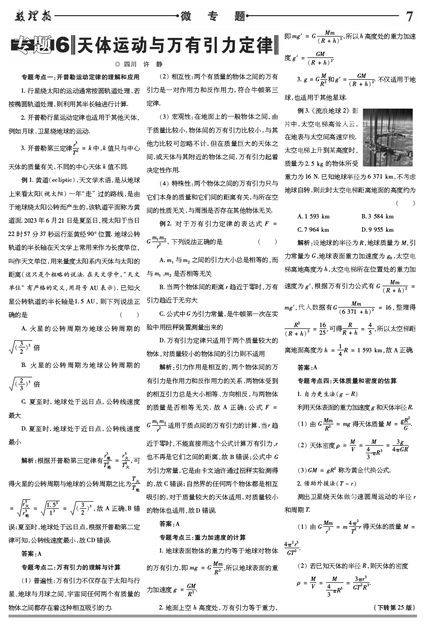 数理报
微 专 题
7
专题16 天体运动与万有引力定律
◎ 四川 许 静
专题考点一:开普勒运动定律的理解和应用
1. 行星绕太阳的运动通常按圆轨道处理,若
按椭圆轨道处理,则利用其半长轴进行计算.
2. 开普勒行星运动定律也适用于其他天体,
例如月球、卫星绕地球的运动.
3. 开普勒第三定律 r³/T² = k 中,k 值只与中心
天体的质量有关,不同的中心天体 k 值不同.
例 1. 黄道(ecliptic),天文学术语,是从地球
上来看太阳(视太阳)一年"走"过的路线,是由
于地球绕太阳公转而产生的,该轨道平面称为黄
道面. 2023 年 6 月 21 日是夏至日,视太阳于当日
22 时 57 分 37 秒运行至黄经 90° 位置. 地球公转
轨道的半长轴在天文学上常用来作为长度单位,
叫作天文单位,用来量度太阳系内天体与太阳的
距离(这只是个粗略的说法. 在天文学中,"天文
单位"有严格的定义,用符号 AU 表示). 已知火
星公转轨道的半长轴是 1.5 AU,则下列说法正
确的是 ( )
A. 火星的公转周期为地球公转周期的
√(3/2)³ 倍
B. 火星的公转周期为地球公转周期的
√(2/3)³ 倍
C. 夏至时,地球处于远日点,公转线速度
最大
D. 夏至时,地球处于近日点,公转线速度
最小
解析:根据开普勒第三定律有
得火星的公转周期与地球的公转周期之比为
= √(3/2)³,故 A 正确,B 错
误;夏至时,地球处于远日点,根据开普勒第二定
律可知,公转线速度最小,故 CD 错误.
答案:A
专题考点二:万有引力的理解与计算
(1) 普遍性:万有引力不仅存在于太阳与行
星、地球与月球之间,宇宙间任何两个有质量的
物体之间都存在着这种相互吸引的力.
(2) 相互性:两个有质量的物体之间的万有
引力是一对作用力和反作用力,符合牛顿第三
定律.
(3) 宏观性:在地面上的一般物体之间,由
于质量比较小,物体间的万有引力比较小,与其
他力比较可忽略不计,但在质量巨大的天体之
间,或天体与其附近的物体之间,万有引力起着
决定性作用.
(4) 特殊性:两个物体之间的万有引力只与
它们本身的质量和它们间的距离有关,与所在空
间的性质无关,与周围是否存在其他物体无关.
例 2. 对于万有引力定律的表达式 F =
G m₁m₂/r²,下列说法正确的是 ( )
A. m₁ 与 m₂ 之间的引力大小总是相等的,而
与 m₁、m₂ 是否相等无关
B. 当两个物体间的距离 r 趋近于零时,万有
引力趋近于无穷大
C. 公式中 G 为引力常量,是牛顿第一次在实
验中用扭秤装置测量出来的
D. 万有引力定律只适用于两个质量较大的
物体,对质量较小的物体间的引力则不适用
解析:引力作用是相互的,两个物体间的万
有引力是作用力和反作用力的关系,两物体受到
的相互引力总是大小相等、方向相反,与两物体
的质量是否相等无关,故 A 正确;公式 F =
G m₁m₂/r² 适用于质点间的万有引力的计算,当 r 趋
近于零时,不能直接用这个公式计算万有引力,r
也不再是它们之间的距离,故 B 错误;公式中 G
为引力常量,它是由卡文迪许通过扭秤实验测得
的,故 C 错误;自然界的任何两个物体都是相互
吸引的,对于质量较大的天体适用,对质量较小
的物体也适用,故 D 错误.
答案:A
专题考点三:重力加速度的计算
1. 地球表面物体的重力约等于地球对物体
的万有引力,即 mg = G Mm/R²,所以地球表面的重
力加速度 g = GM/R².
2. 地面上空 h 高度处,万有引力等于重力,
即 mg′ = G Mm/(R + h)²,所以 h 高度处的重力加速
度 g′ = GM/(R + h)².
3. g = G M/R² 和 g′ = GM/(R + h)² 不仅适用于地
球,也适用于其他星球.
例 3.《流浪地球 2》影
片中,太空电梯高耸入云,
在地表与太空间高速穿梭.
太空电梯上升到某高度时,
质量为 2.5 kg 的物体所受
重力为 16 N. 已知地球半径为 6 371 km,不考虑
地球自转,则此时太空电梯距离地面的高度约为
( )
A. 1 593 km B. 3 584 km
C. 7 964 km D. 9 955 km
解析:设地球的半径为 R,地球质量为 M,引
力常量为 G,地球表面重力加速度为 g₀,太空电
梯离地高度为 h,太空电梯所在位置处的重力加
速度为 g′,根据万有引力公式有 G Mm/(R + h)² =
mg′,代入数据有 G Mm/(6 371 + h)² = 16,整理得
R²/(R + h)² = 16/25,可得 R/(R + h) = 4/5,所以太空梯距
离地面高度为 h = 1/4 R = 1 593 km,故 A 正确.
答案:A
专题考点四:天体质量和密度的估算
1. 自力更生法(g - R)
利用天体表面的重力加速度 g 和天体半径 R.
(1) 由 G Mm/R² = mg 得天体质量 M = gR²/G.
(2) 天体密度 ρ = M/V = M/(4/3 πR³) = 3g/4πGR.
(3) GM = gR² 称为黄金代换公式.
2. 借助外援法(T - r)
测出卫星绕天体做匀速圆周运动的半径 r
和周期 T.
(1) 由 G Mm/r² = m 4π²/T² r 得天体的质量 M =
4π²r³/GT².
(2) 若已知天体的半径 R,则天体的密度
ρ = M/V = M/(4/3 πR³) = 3πr³/GT²R³.
(下转第 25 版)